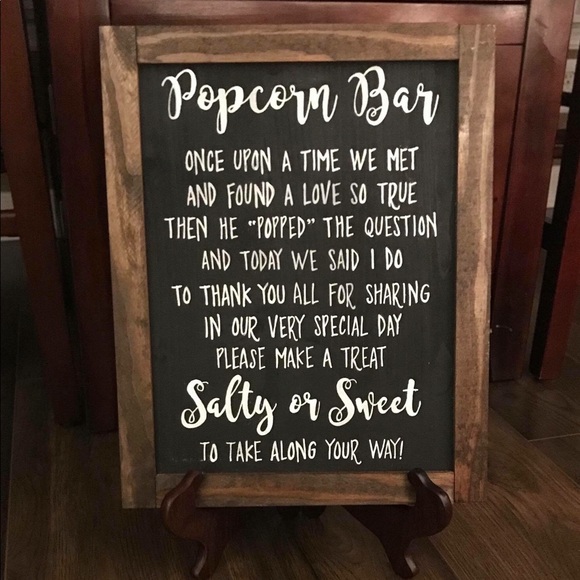 Popcorn Bar
ONCE UPON A TIME WE MET
AND FOUND A LOVE SO TRUE
THEN HE "POPPED" THE QUESTION
AND TODAY WE SAID I DO
TO THANK YOU ALL FOR SHARING
IN OUR VERY SPECIAL DAY
PLEASE MAKE A TREAT
Salty or Sweet
TO TAKE ALONG YOUR WAY!